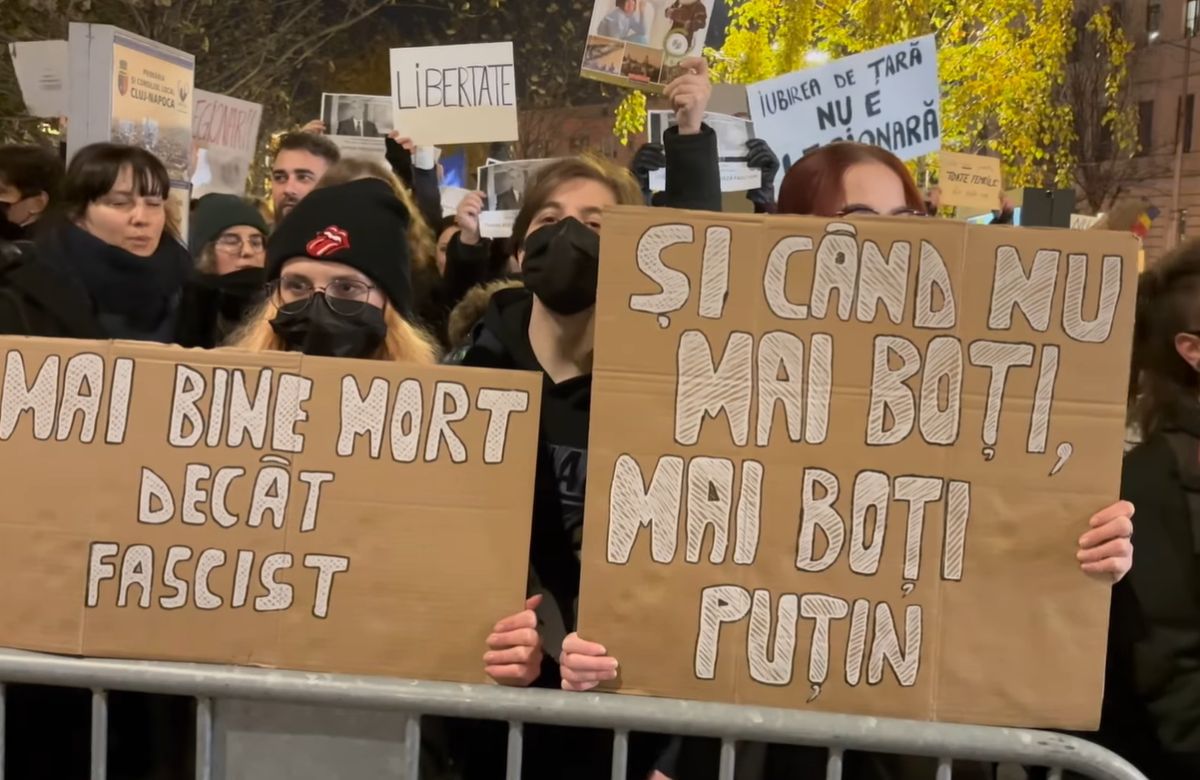 PRIMĂRIA
ȘI CONSILIUL LOCAL
CLUJ-NAPOCA
LIBERTATE
IUBIREA DE ȚARĂ
NU E
TOATE FEMEILE
MAI BINE MORT
DECÂT
FASCIST
ȘI CÂND NU
MAI BOȚI,
MAI BOȚI
PUȚIN